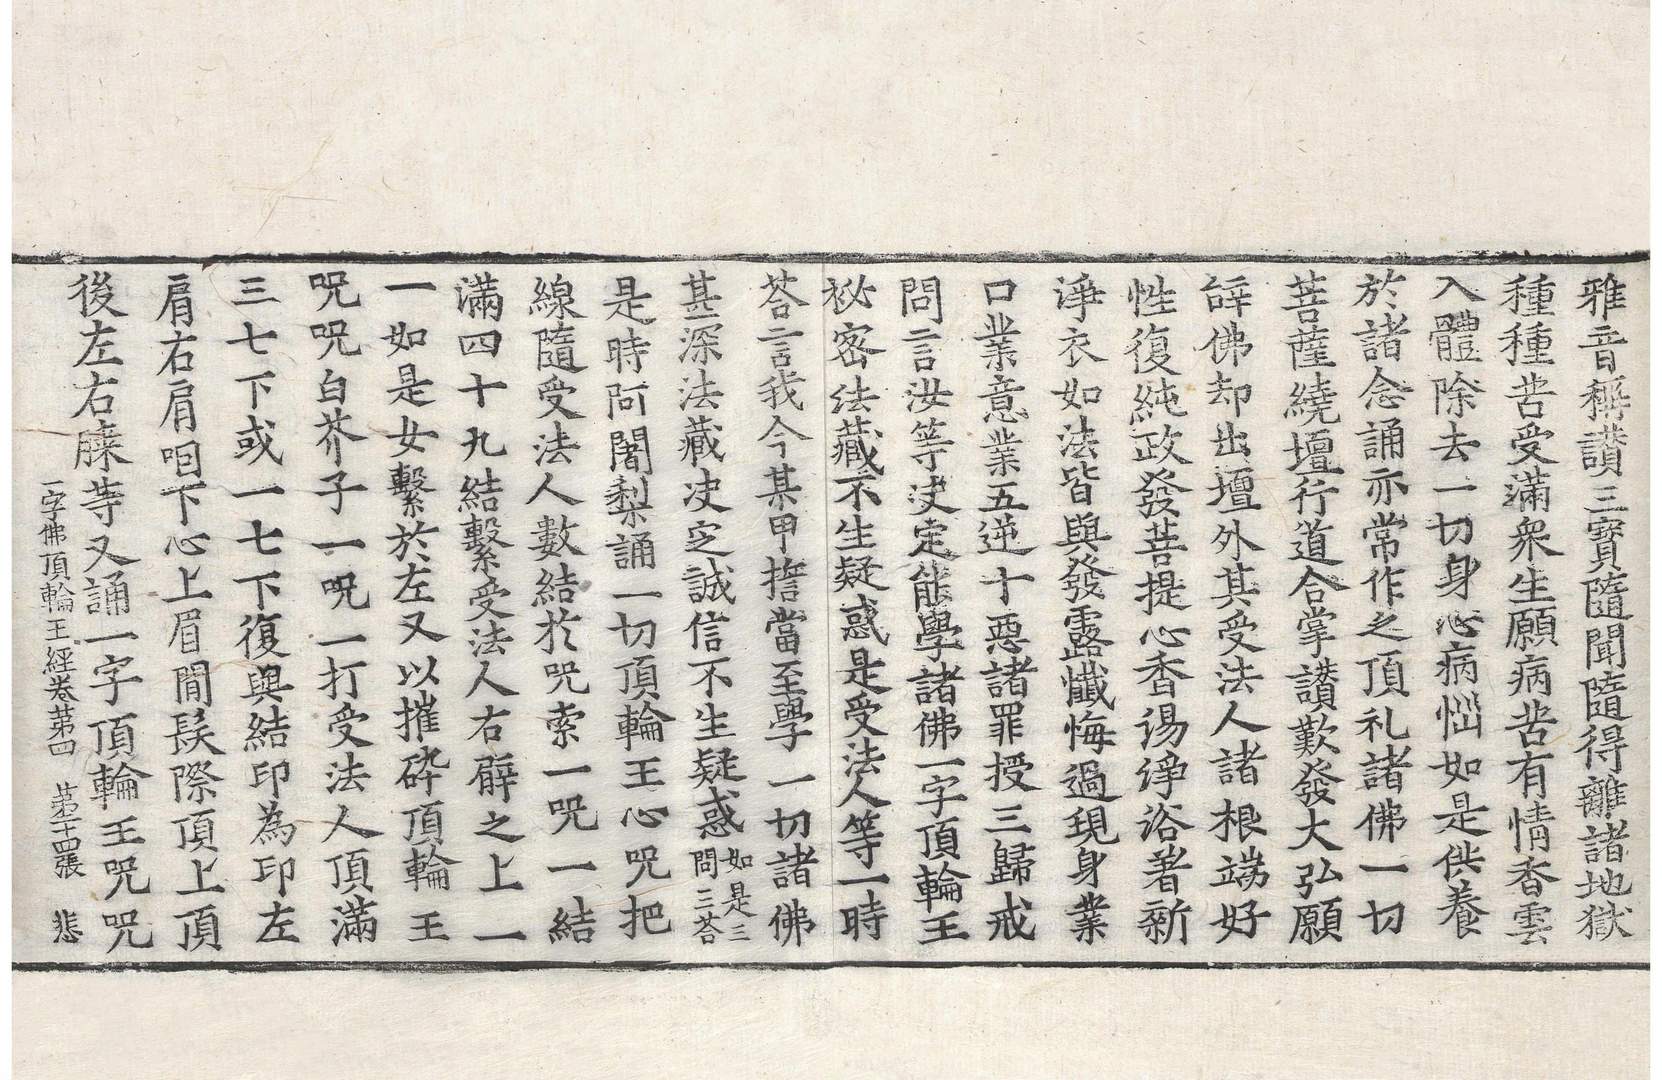 雅音稱讃三寶隨聞隨得離諸地獄
種種苦受滿衆生願病苦有情香雲
入體除去一切身心病惱如是供養
於諸念誦亦常作之頂礼諸佛一切
菩薩繞壇行道合掌讃歎發大弘願
辞佛却出壇外其受法人諸根端好
性復純政發菩提心香湯淨浴著新
淨衣如法皆與發露懺悔過現身業
口業意業五逆十惡諸罪授三歸戒
問言汝等决定能學諸佛一字頂輪王
祕密法藏不生疑惑是受法人等一時
荅言我今某甲擔當至學一切諸佛
甚深法藏决定誠信不生疑惑如是三問三荅
是時阿闍梨誦一切頂輪王心咒把
線隨受法人數結於咒索一咒一結
滿四十九結繫受法人右臂之上一
一如是女繫於左又以摧碎頂輪王
咒咒白芥子一咒一打受法人頂滿
三七下或一七下復與結印為印左
肩右肩咽下心上眉間髮際頂上頂
後左右膝等又誦一字頂輪王咒咒
一字佛頂輪王經卷苐四　苐二十四張　悲